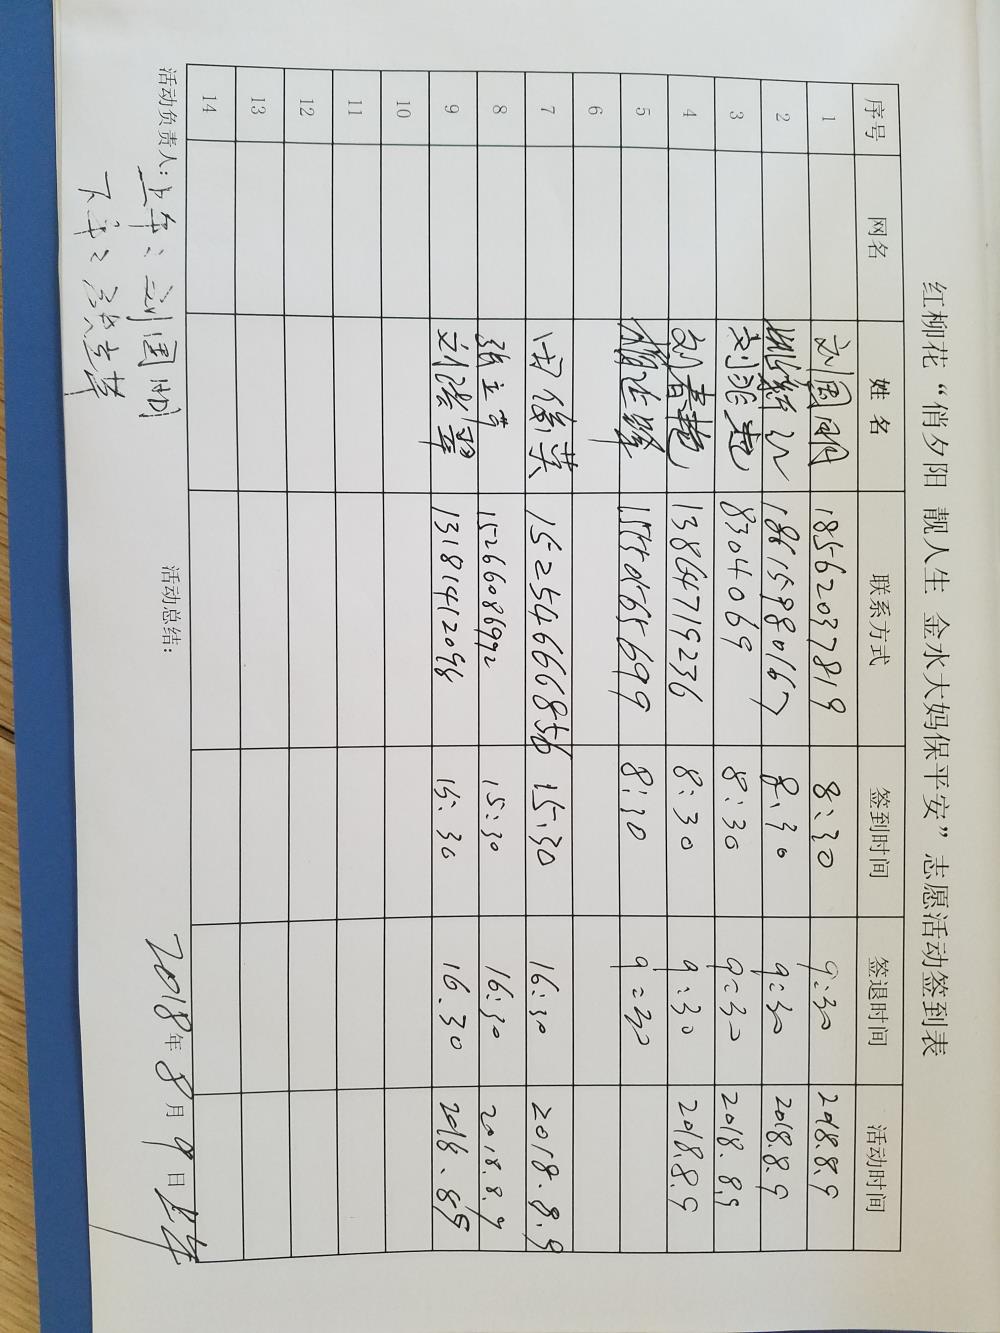 红柳花“俏夕阳 靓人生 金水大妈保平安”志愿活动签到表
序号 网名 姓名 联系方式 签到时间 签退时间 活动时间
1 刘国明 18562037819 8:30 9:30 2018.8.9
2 8:30 9:30 2018.8.9
3 8304069 8:30 9:30 2018.8.9
4 刘春艳 13864719236 8:30 9:30 2018.8.9
5 8:30 9:30
6
7 田俊英 15254666856 15:30 16:30 2018.8.9
8 张立芳 15266086992 15:30 16:30 2018.8.9
9 13181412098 15:30 16.30 2018.8.9
10
11
12
13
14
活动负责人: 上午: 刘国明 活动总结: 2018年8月9日
下午: